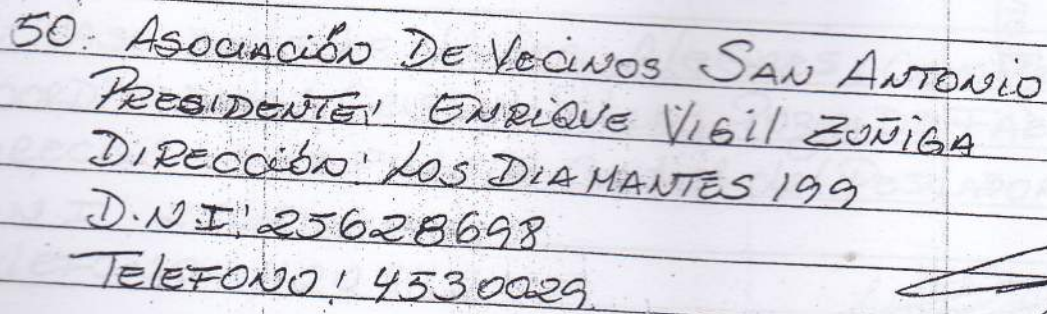 50. Asociación De Vecinos San Antonio
Presidente: Enrique Vigil Zuñiga
Dirección: Los Diamantes 199
D.N.I: 25628698
Telefono: 4530029